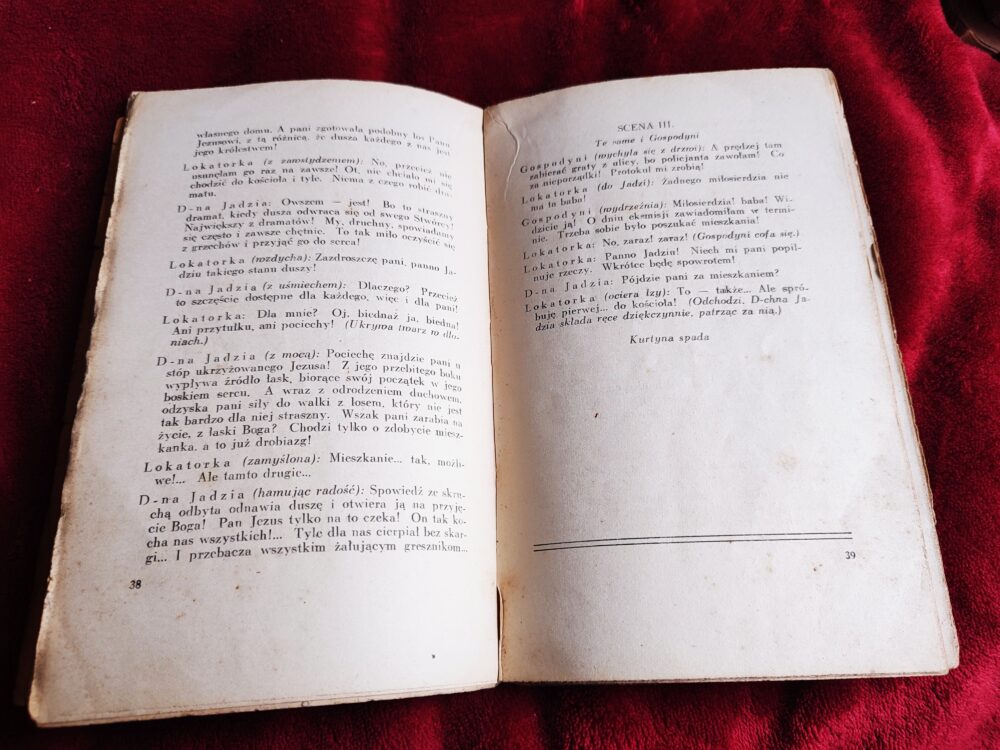 własnego domu. A pani zgotowała podobny los Panu
Jezusowi, z tą różnicą, że dusza każdego z nas jest
jego królestwem!
Lokatorka (z zawstydzeniem): No, przecież nie
usunęłam go raz na zawsze! Ot, nie chciało mi się
chodzić do kościoła i tyle. Niema z czego robić dra-
matu.
D-na Jadzia: Owszem — jest! Bo to straszny
dramat, kiedy dusza odwraca się od swego Stwórcy!
Największy z dramatów! My, druchny, spowiadamy
się często i zawsze chętnie. To tak miło oczyścić się
z grzechów i przyjąć go do serca!
Lokatorka (wzdycha): Zazdroszczę pani, panno Ja-
dziu takiego stanu duszy!
D-na Jadzia (z uśmiechem): Dlaczego? Przecież
to szczęście dostępne dla każdego, więc i dla pani!
Lokatorka: Dla mnie? Oj, biednaż ja, biedna!
Ani przytułku, ani pociechy! (Ukrywa twarz w dło-
niach.)
D-na Jadzia (z mocą): Pociechę znajdzie pani u
stóp ukrzyżowanego Jezusa! Z jego przebitego boku
wypływa źródło łask, biorące swój początek w jego
boskiem sercu. A wraz z odrodzeniem duchowem,
odzyska pani siły do walki z losem, który nie jest
tak bardzo dla niej straszny. Wszak pani zarabia na
życie, z łaski Boga? Chodzi tylko o zdobycie miesz-
kanka, a to już drobiazg!
Lokatorka (zamyślona): Mieszkanie... tak, możli-
we!... Ale tamto drugie...
D-na Jadzia (hamując radość): Spowiedź ze skru-
chą odbyta odnawia duszę i otwiera ją na przyję-
cie Boga! Pan Jezus tylko na to czeka! On tak ko-
cha nas wszystkich!... Tyle dla nas cierpiał bez skar-
gi... I przebacza wszystkim żałującym gresznikom...
38
SCENA III.
Te same i Gospodyni
Gospodyni (wychyla się z drzwi): A prędzej tam
zabierać graty z ulicy, bo policjanta zawołam! Co
za nieporządki! Protokuł mi zrobią!
Lokatorka (do Jadzi): Żadnego miłosierdzia nie
ma ta baba!
Gospodyni (wydrzeźnia): Miłosierdzia! baba! Wi-
dzicie ją! O dniu eksmisji zawiadomiłam w termi-
nie. Trzeba sobie było poszukać mieszkania!
Lokatorka: No, zaraz! zaraz! (Gospodyni cofa się.)
Lokatorka: Panno Jadziu! Niech mi pani popil-
nuje rzeczy. Wkrótce będę spowrotem!
D-na Jadzia: Pójdzie pani za mieszkaniem?
Lokatorka (ociera łzy): To — także... Ale spró-
buję, pierwej... do kościoła! (Odchodzi, D-chna Ja-
dzia składa ręce dziękczynnie, patrząc za nią.)
Kurtyna spada
39